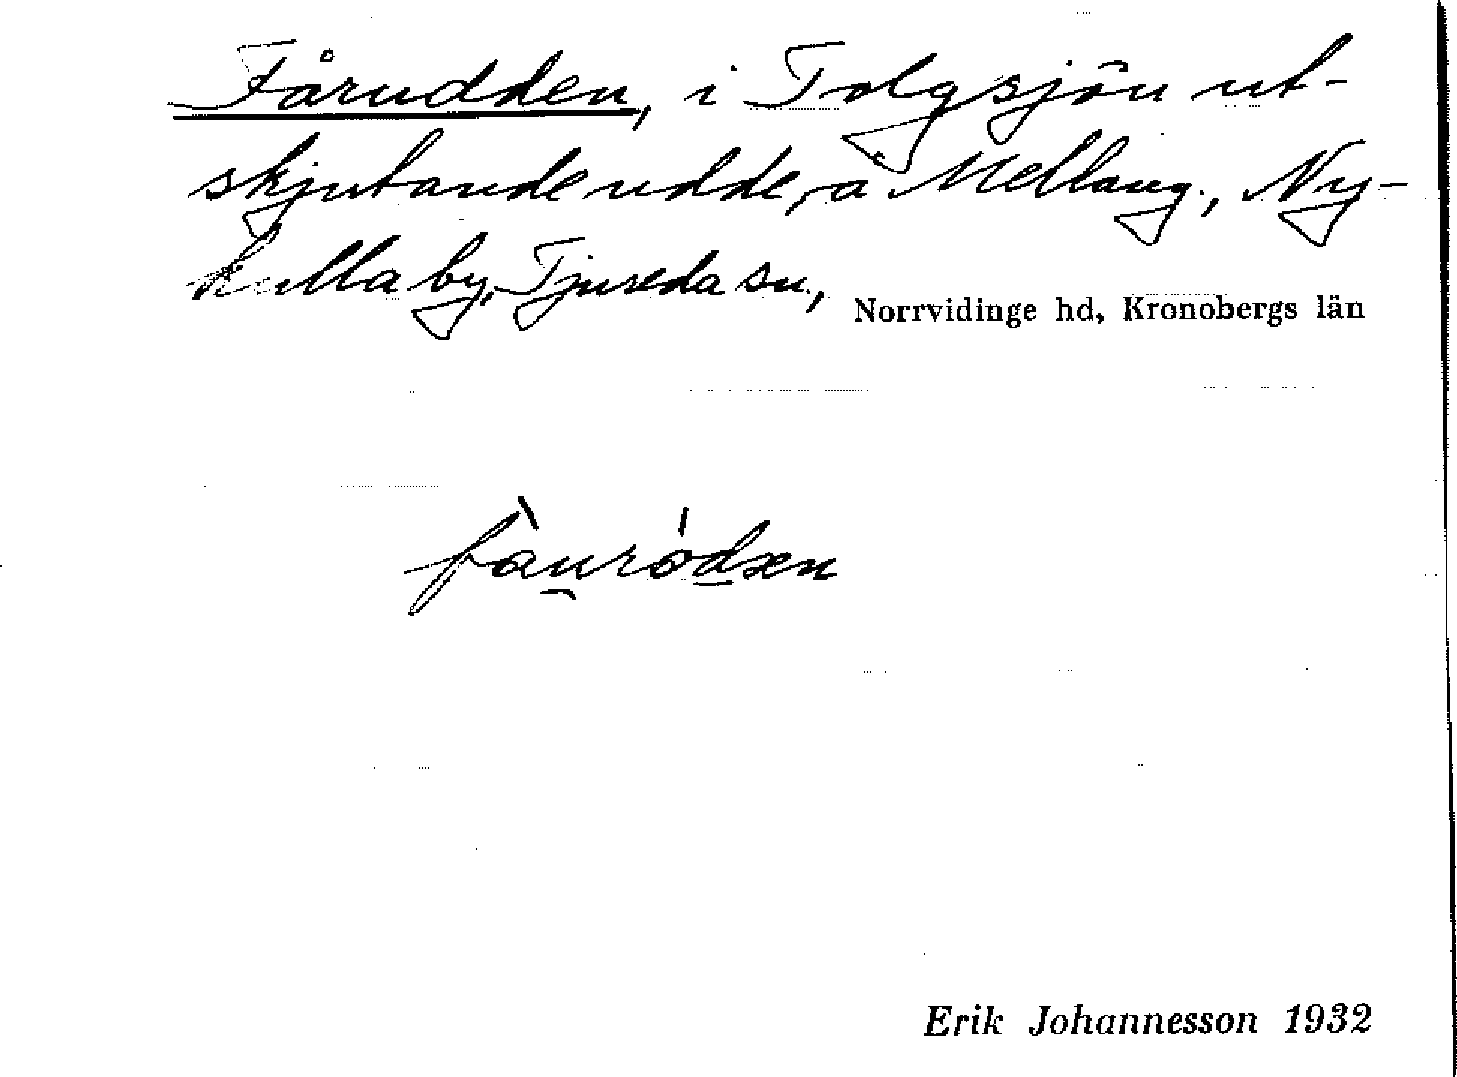 Fårudden, i Tolgsjön ut-
skjutande udde, å Mellang., Ny-
kulla by, Tjureda sn,
Norrvidinge hd, Kronobergs län
fàu̯ródxen
Erik Johannesson 1932